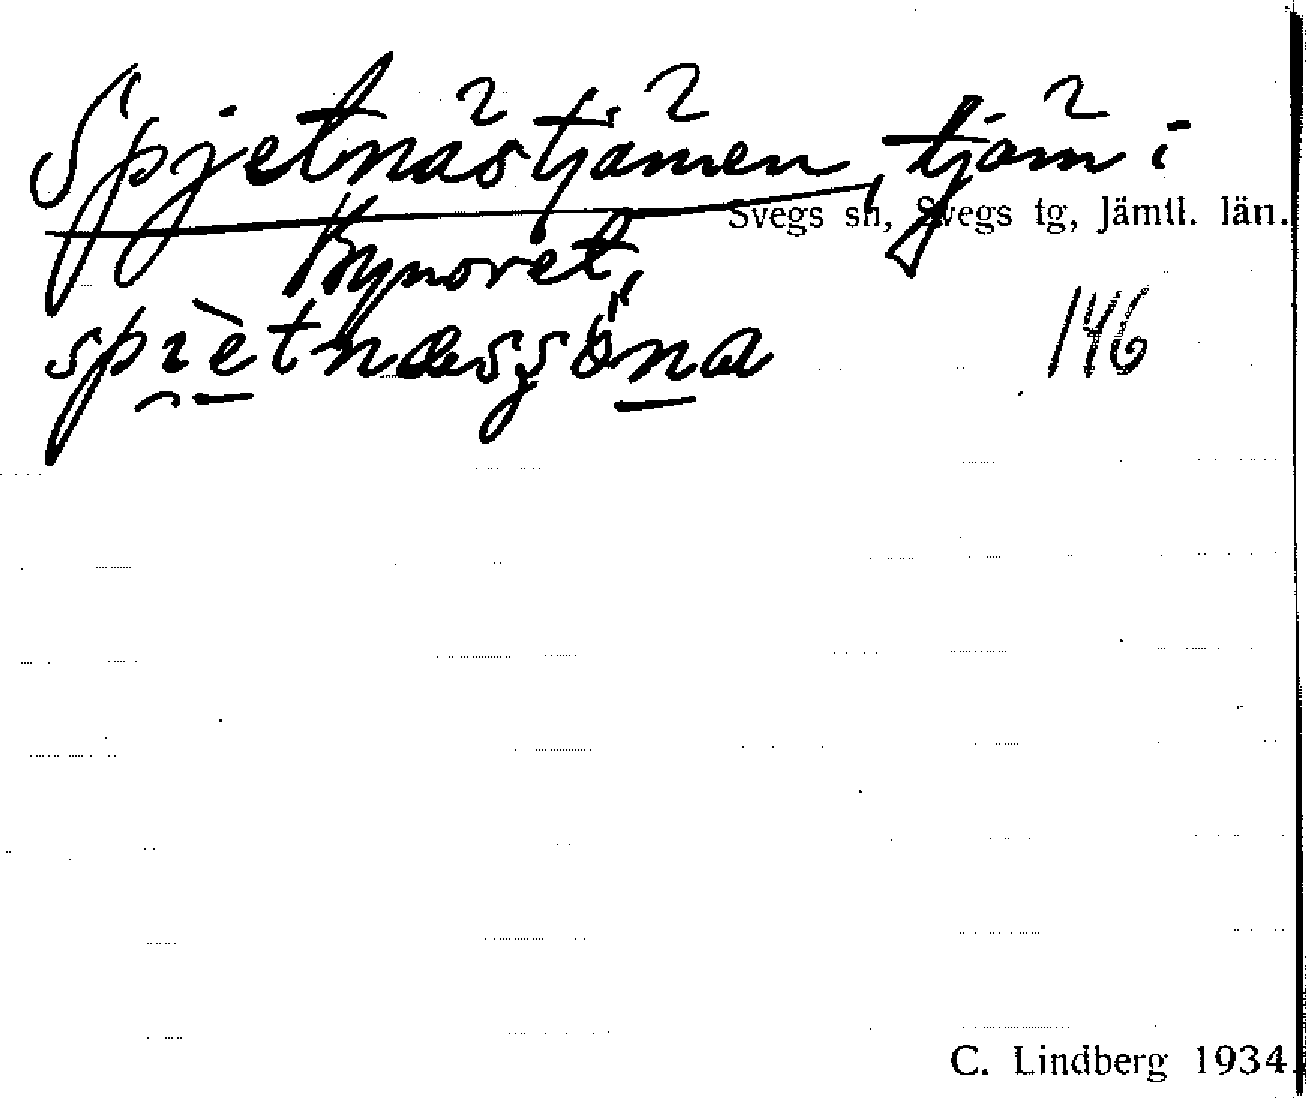 Spjetnästjämen, tjäm i
Svegs sn, Svegs tg, Jämtl. län.
spiètnæsşöna
146
C. Lindberg 1934.